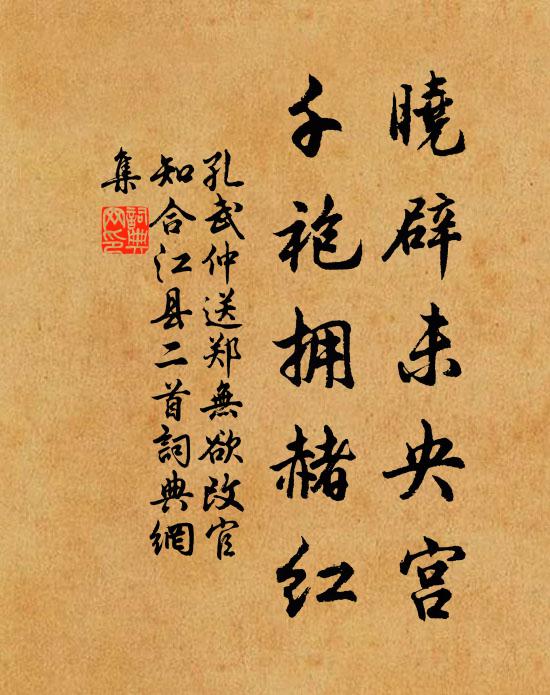 曉辟未央宫
千袍拥赭红
孔武仲送郑無欲改官
知合江县二首詞典網
集
詞典網印